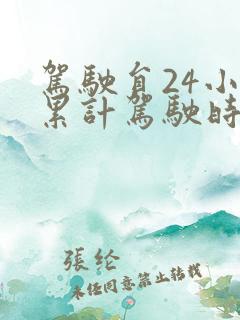 駕駛貟24小
累計駕駛時
張纶
未经同意禁止转载